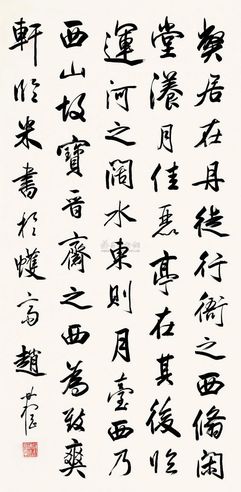 弊居在丹徒行衙之西修闲
堂漾月佳丽亭在其后临
運河之阔水東則月臺西乃
西山故寶晋齋之西為致爽
軒临米書於蠖斋趙